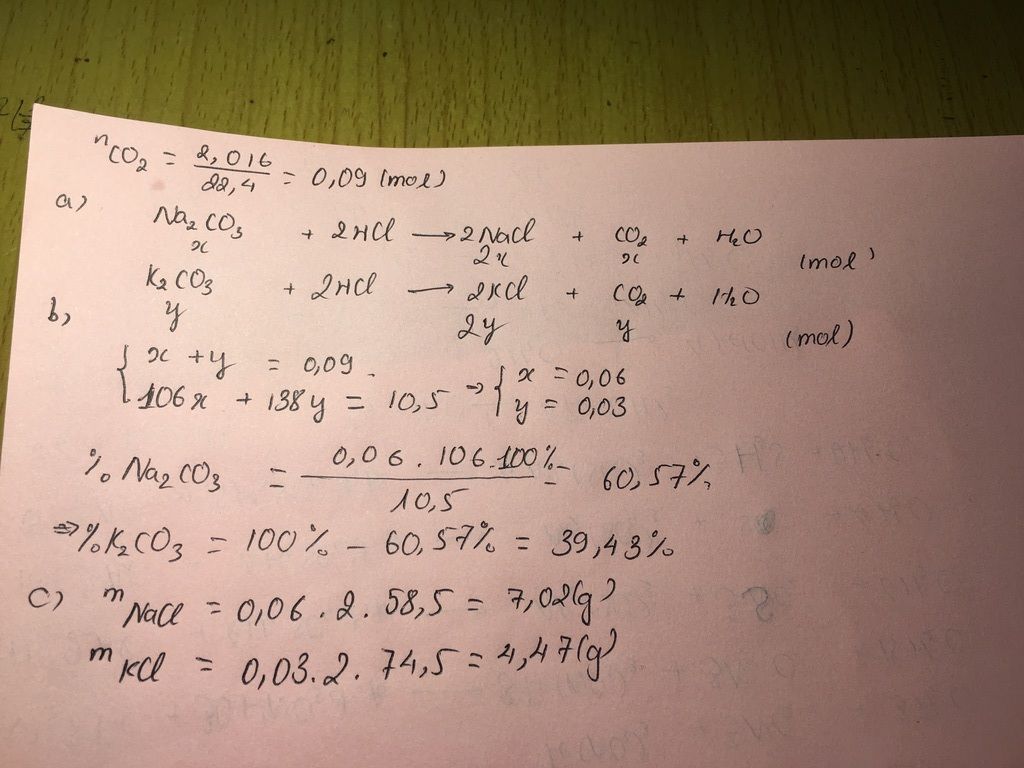 nCO2 = 2,016 / 22,4 = 0,09 (mol)
a) Na2CO3 + 2HCl → 2NaCl + CO2 + H2O
x 2x x (mol)
K2CO3 + 2HCl → 2KCl + CO2 + H2O
y 2y y (mol)
b)
{ x + y = 0,09 ⇒ { x = 0,06
106x + 138y = 10,5 y = 0,03
% Na2CO3 = 0,06 . 106.100% / 10,5 = 60,57%
⇒ % K2CO3 = 100% - 60,57% = 39,43%
c) mNaCl = 0,06 . 2 . 58,5 = 7,02(g)
mKCl = 0,03. 2. 74,5 = 4,47(g)